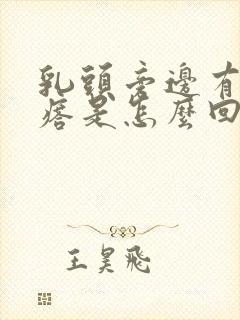 乳頭旁邊有
痞是怎麼回
王昊飛